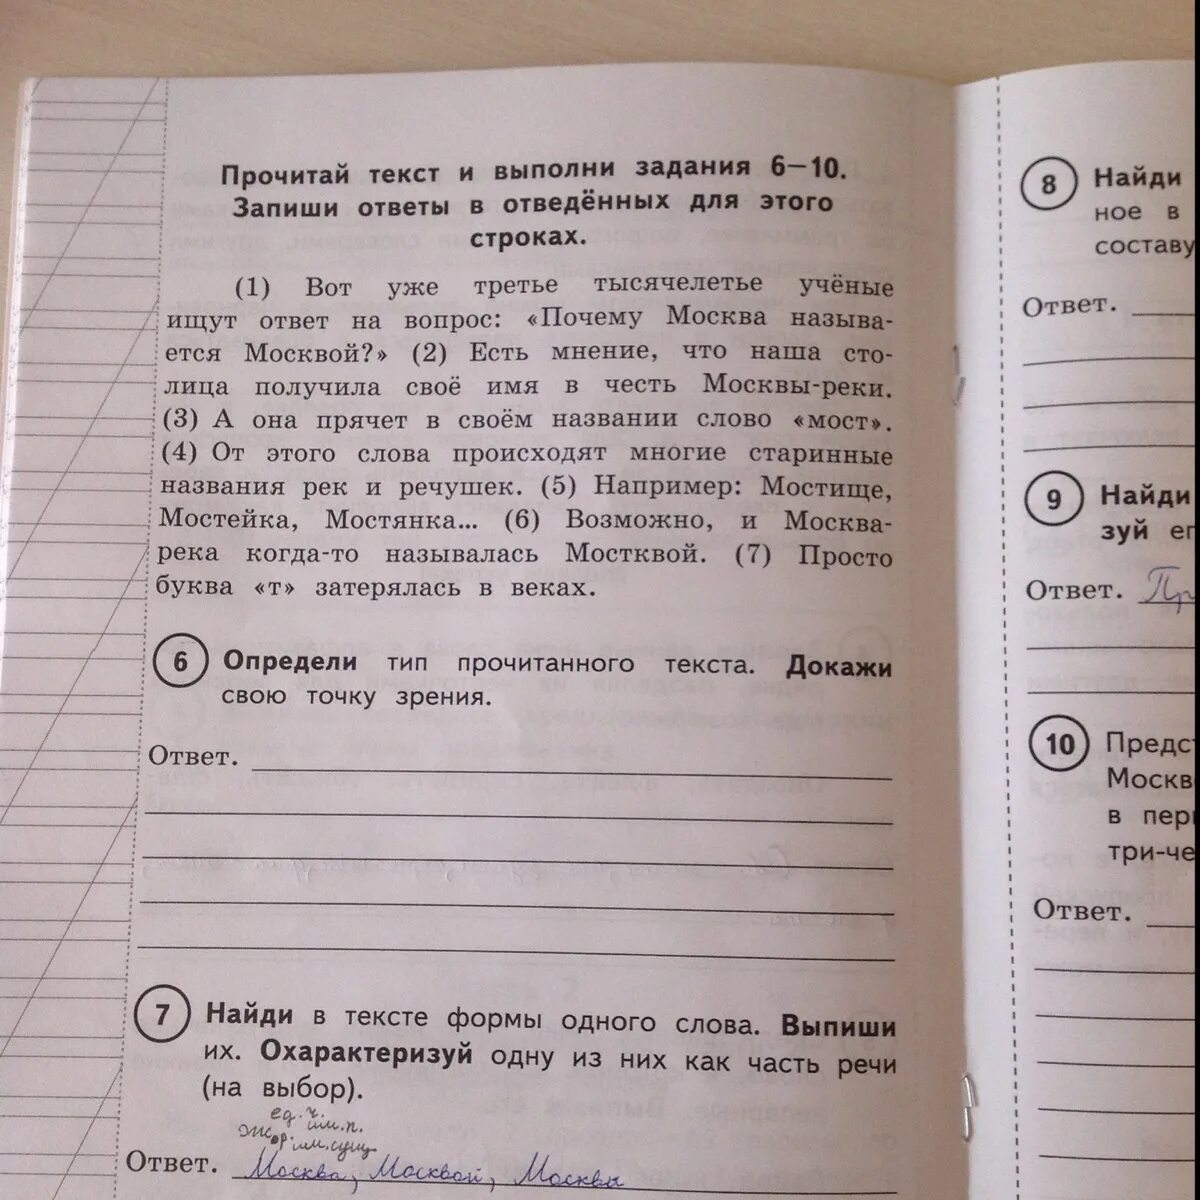 Прочитай текст и выполни задания 6–10.
Запиши ответы в отведённых для этого
строках.
(1) Вот уже третье тысячелетье учёные
ищут ответ на вопрос: «Почему Москва называ-
ется Москвой?» (2) Есть мнение, что наша сто-
лица получила своё имя в честь Москвы-реки.
(3) А она прячет в своём названии слово «мост».
(4) От этого слова происходят многие старинные
названия рек и речушек. (5) Например: Мостище,
Мостейка, Мостянка... (6) Возможно, и Москва-
река когда-то называлась Мостквой. (7) Просто
буква «т» затерялась в веках.
6 Определи тип прочитанного текста. Докажи
свою точку зрения.
Ответ.
7 Найди в тексте формы одного слова. Выпиши
их. Охарактеризуй одну из них как часть речи
(на выбор).
ед. ч.
им. п.
им. сущ.
Ответ. Москва, Москвой, Москвы
8 Найди
ное в
составу
Ответ.
9 Найди
зуй ег
Ответ. Пр
10 Предст
Москв
в пер
три-че
Ответ.